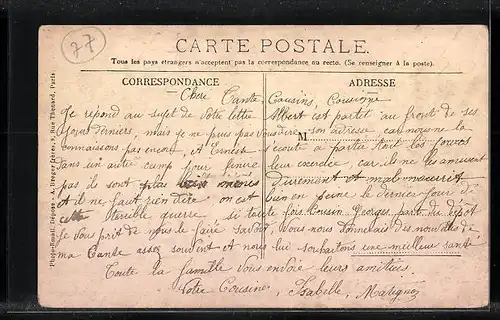 77
CARTE POSTALE.
Tous les pays étrangers n'acceptent pas la correspondance au recto. (Se renseigner à la poste).
CORRESPONDANCE
ADRESSE
Photo-Email. Dépose - A. Breger Frères, 9, Rue Thénard, Paris
M
Chere Tante, Cousins, Cousine
Je repond au sujet de votre lettre
jours derniers, mais je ne puis pas vous dire
connaissons pas encore, A Ernest
dans un autre camp pour finire
pas ils sont plus bien
et il ne faut rien dire on est
cette terrible guerre
Je vous prit de nous le faire savoir
ma Tante assez souvent et nous lui souhaitons une meilleure santé
Toute la famille vous envoie leurs amitiées
Votre Cousine, Isabelle,
Albert est partit au front de ses
son adresse, car nous ne la
a partie tout les jours
leur exercice, car il ne les amusent
durement et mal nourrit
bien en peine le dernier jour de
si toute fois Cousin Georges part du dépôt
vous nous donnerais des nouvelles de